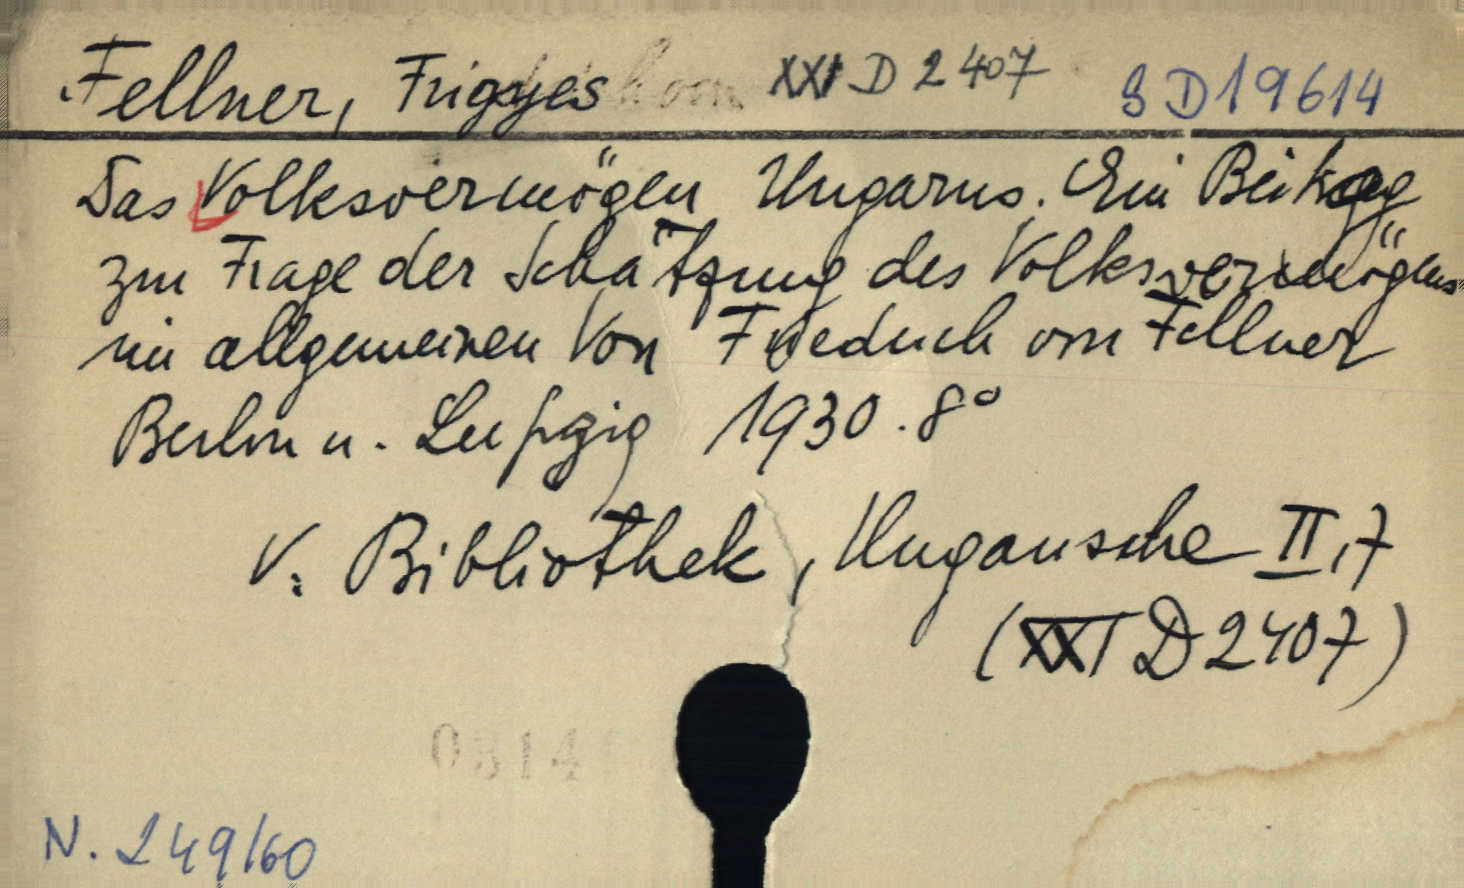 Fellner, Frigyes XXI D 2407 SD19614
Das Volksvermögen Ungarns. Ein Beitrag
zur Frage der Schätzung des Volksvermögens
im allgemeinen Von Friedrich von Fellner
Berlin u. Leipzig 1930. 8°
V. Bibliothek, Ungarische II, 7
(XXI D 2407)
0314
N. 249/60